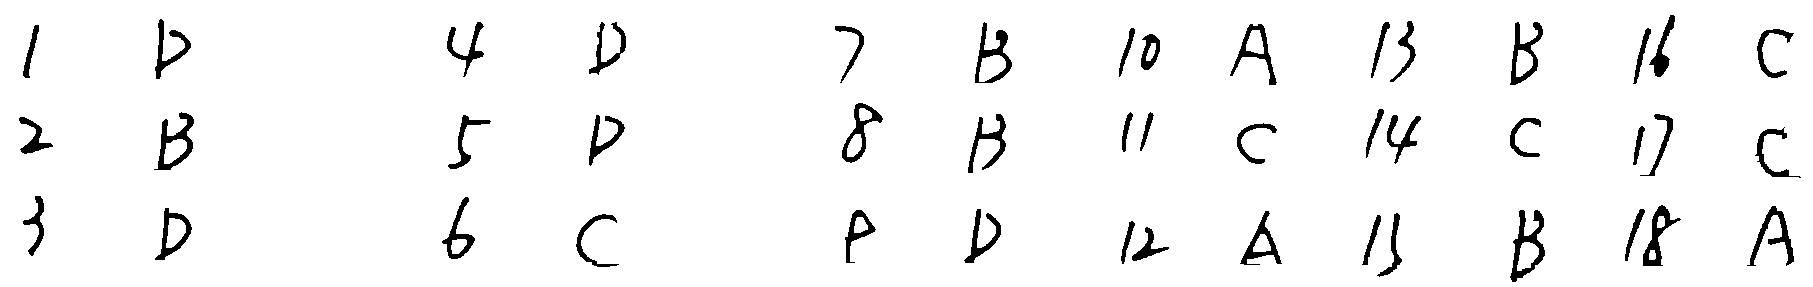 1 D 4 D 7 B 10 A 13 B 16 C
2 B 5 D 8 B 11 C 14 C 17 C
3 D 6 C 9 D 12 A 15 B 18 A